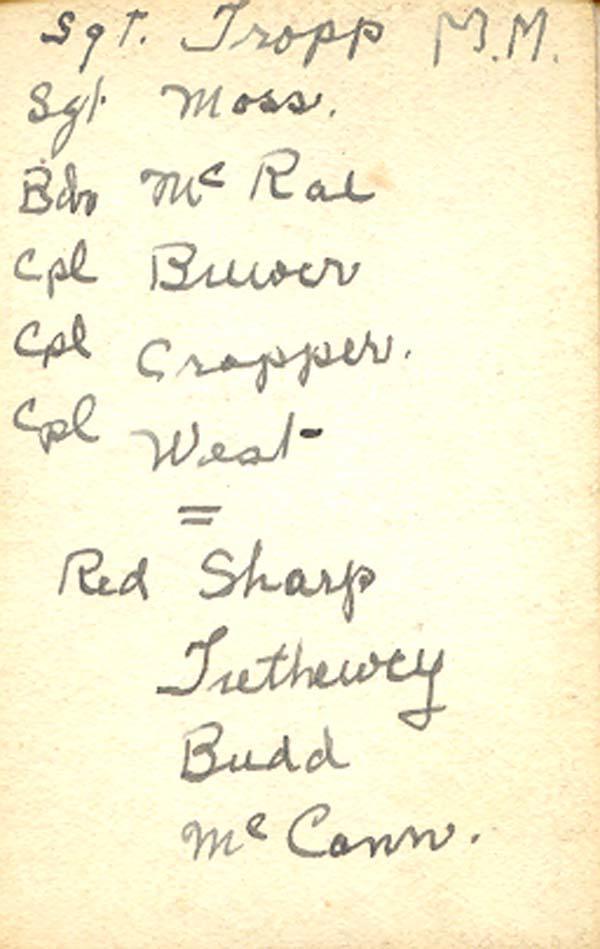 Sgt. Tropp M.M.
Sgt Moss.
Bdr McRae
Cpl Brewer
Cpl Cropper.
Cpl West
=
Red Sharp
Trethewey
Budd
McCann.